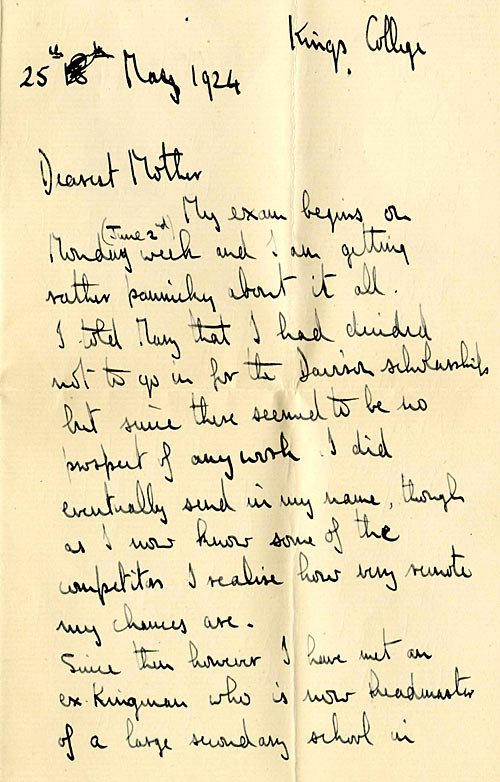 Kings College
25th May 1924
Dearest Mother
My exam begins on
(June 2nd)
Monday week and I am getting
rather panicky about it all.
I told Mary that I had decided
not to go in for the Davison scholarships
but since there seemed to be no
prospect of any work I did
eventually send in my name, though
as I now know some of the
competitors I realise how very remote
my chances are.
Since then however I have met an
ex-Kingman who is now headmaster
of a large secondary school in